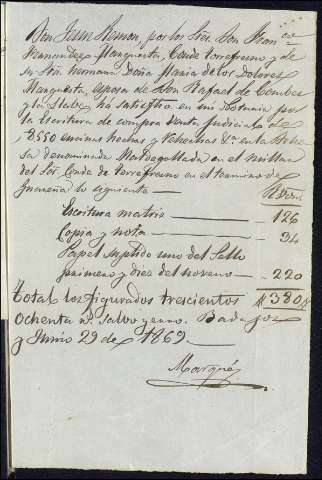 Don Juan Ramon, por los Sres. Don Franco
Fernandez Marquesta, Conde Torrefresno y de
su Sra. hermana Doña Maria de los Dolores
Marquesta, esposa de Don Rafael de Combes
y la Llabe, ha satisfecho en mi Notaria por
la Escritura de compra venta judicial de
8550 encinas hechas y &ca. en la Dehe
sa denominada en el millar
del Sor. Conde de Torrefresno en el termino de
Guareña lo siguiente — Rs. Vn.
Escritura matriz — 126
Copia y nota — 34
Papel suplido uno del Sello
primero y diez del noveno — 220
Total los figurados trescientos # 380
ochenta rs. salvo yerro. Badajoz
y Junio 29 de 1869.
Marqués